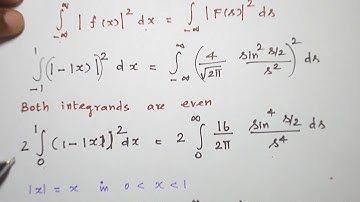 ∫_{-∞}^{∞} |f(x)|² dx = ∫_{-∞}^{∞} |F(s)|² ds
∫_{-1}^{1} (1-|x|)² dx = ∫_{-∞}^{∞} (4/√2π sin² s/2 / s²)² ds
Both integrands are even
2 ∫_{0}^{1} (1-|x|)² dx = 2 ∫_{0}^{∞} 16/2π sin⁴ s/2 / s⁴ ds
|x| = x in 0 < x < 1